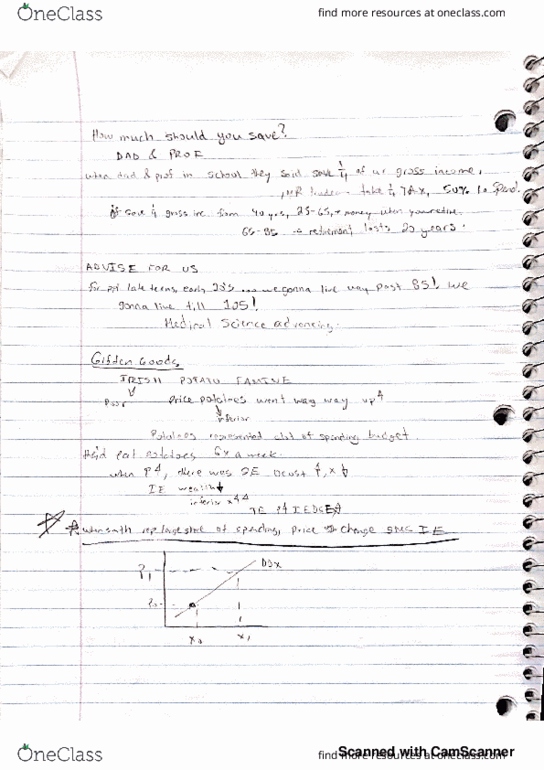 OneClass
find more resources at oneclass.com
How much should you save?
DAD & PROF
when dad & prof in school they save 1/4 of ur gross income,
take 1/4 TAX, 50% to spend.
save 1/4 gross inc. from 40 yrs, 25-65, money when you retire
65-85 retirement lasts 20 years.
ADVISE FOR US
for ppl late teens early 20s ... we gonna live way past 85! we
gonna live till 105!
Medical Science advancing.
Giffen Goods
IRISH POTATO FAMINE
Poor price potatoes went way way up↑
inferior
Potatoes represented a lot of spending budget.
eat potatoes 6x a week.
when P↑, there was SE
IE wealth↓
inferior x↑↑
when smth rep large of spending, price change IE
P₁
D9x
P₀
x₀ x₁
OneClass
find more resources at oneclass.com
Scanned with CamScanner